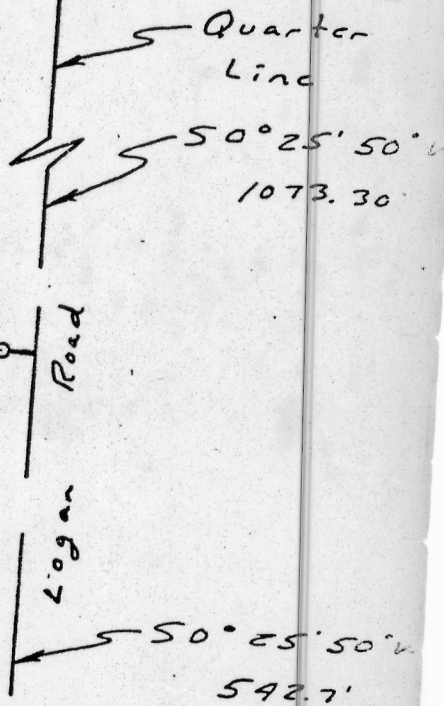 Quarter
Line
S 0° 25' 50" W
1073.30
Road
Logan
S 0° 25' 50" W
542.7'